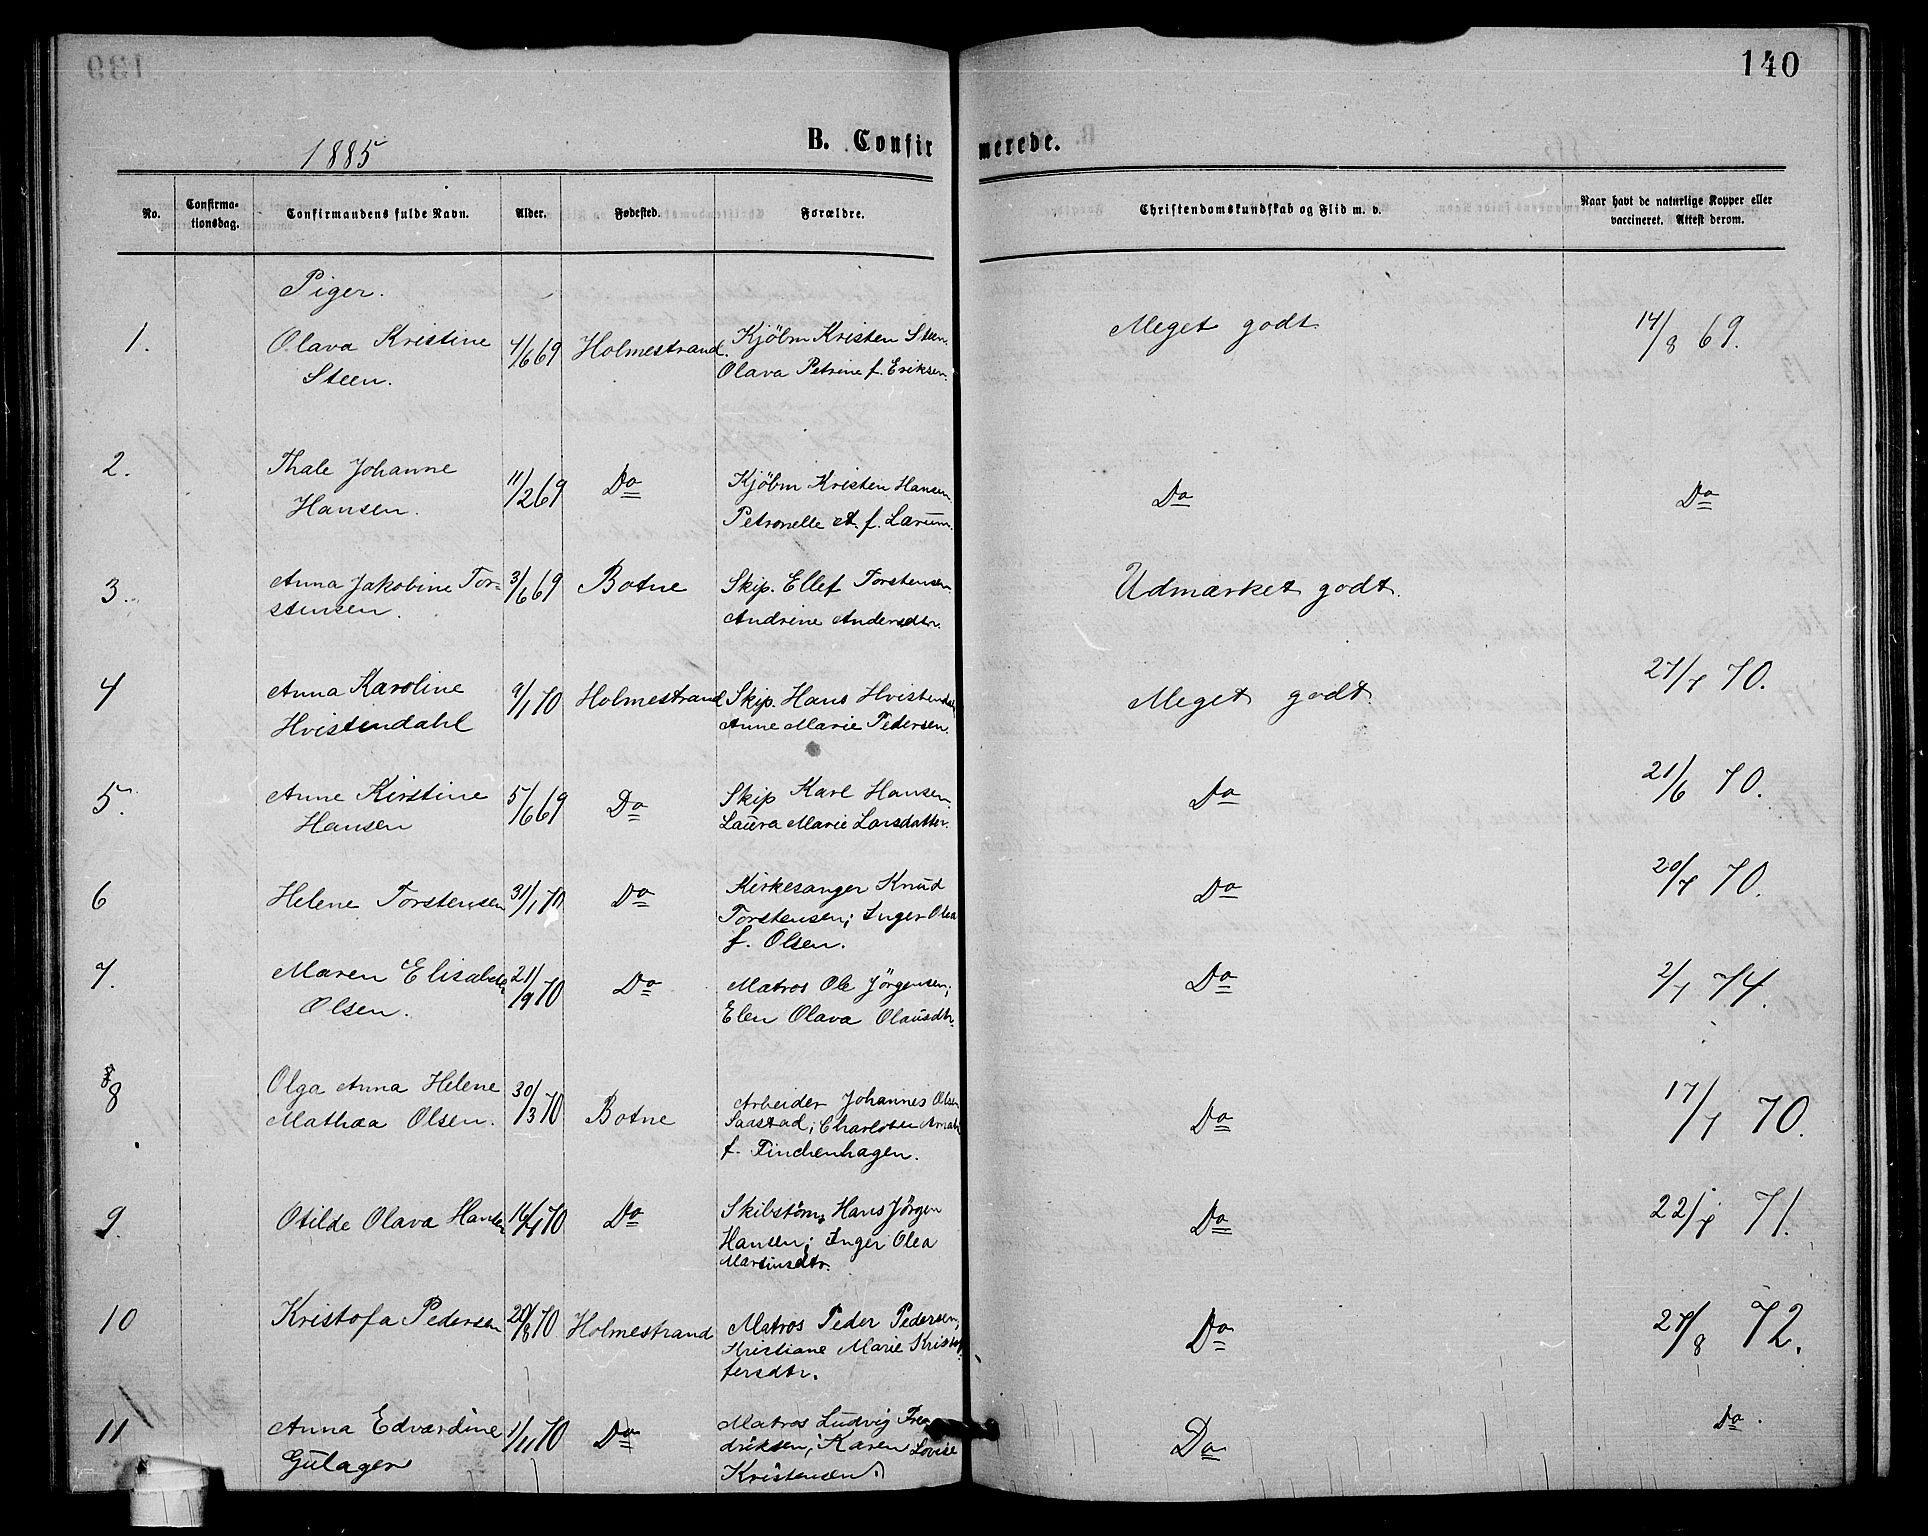 139
140
1885
B. Confirmerede.
No.
Confirmationsdag.
Confirmandens fulde Navn.
Alder.
Fødested.
Forældre.
Christendomskundskab og Flid m. v.
Naar havt de naturlige Kopper eller vaccineret. Attest derom.
Piger.
1. Olava Kristine 4/6 69 Holmestrand. Kjöbm Kristen Steen. Meget godt 14/8 69.
Steen. Olava Petrine f. Eriksen.
2. Thale Johanne 11/2 69 Do Kjöbm Kristen Hansen. Do Do
Hansen. Petronelle A. f. Larum.
3. Anna Jakobine Tor- 3/6 69 Botne Skip. Ellef Torstensen Udmærket godt.
stensen. Andrine Andersdtr.
4 Anna Karoline 9/1 70 Holmestrand Skip. Hans Hvistendahl, Meget godt. 27/7 70.
Hvistendahl Anne Marie Pedersen.
5. Anne Kirstine 5/6 69 Do Skip Karl Hansen. Do 21/6 70.
Hansen Laura Marie Larsdatter.
6 Helene Torstensen 31/1 70 Do Kirkesanger Knud Do 20/7 70.
Torstensen; Inger Olea
f. Olsen.
7. Maren Elisabeth 21/9 70 Do Matros Ole Jørgensen; Do 2/7 74.
Olsen. Elen Olava Olausdtr.
8 Olga Anna Helene 30/3 70 Botne Arbeider Johannes Olsen Do 17/7 70.
Mathea Olsen. Saastad; Charlotte
f. Finchenhagen.
9. Otilde Olava Hansen 70 Do Skibstøm. Hans Jørgen Do 71.
Hansen; Inger Olea
Martinsdtr.
10 Kristofa Pedersen 70 Holmestrand Matros Peder Pedersen, Do 27/8 72.
Kristiane Marie Kristof
fersdtr.
11 Anna Edvardine 1/11 70 Do Matros Ludvig Fre Do Do.
Gulager driksen; Karen Lovise
Kristensen.